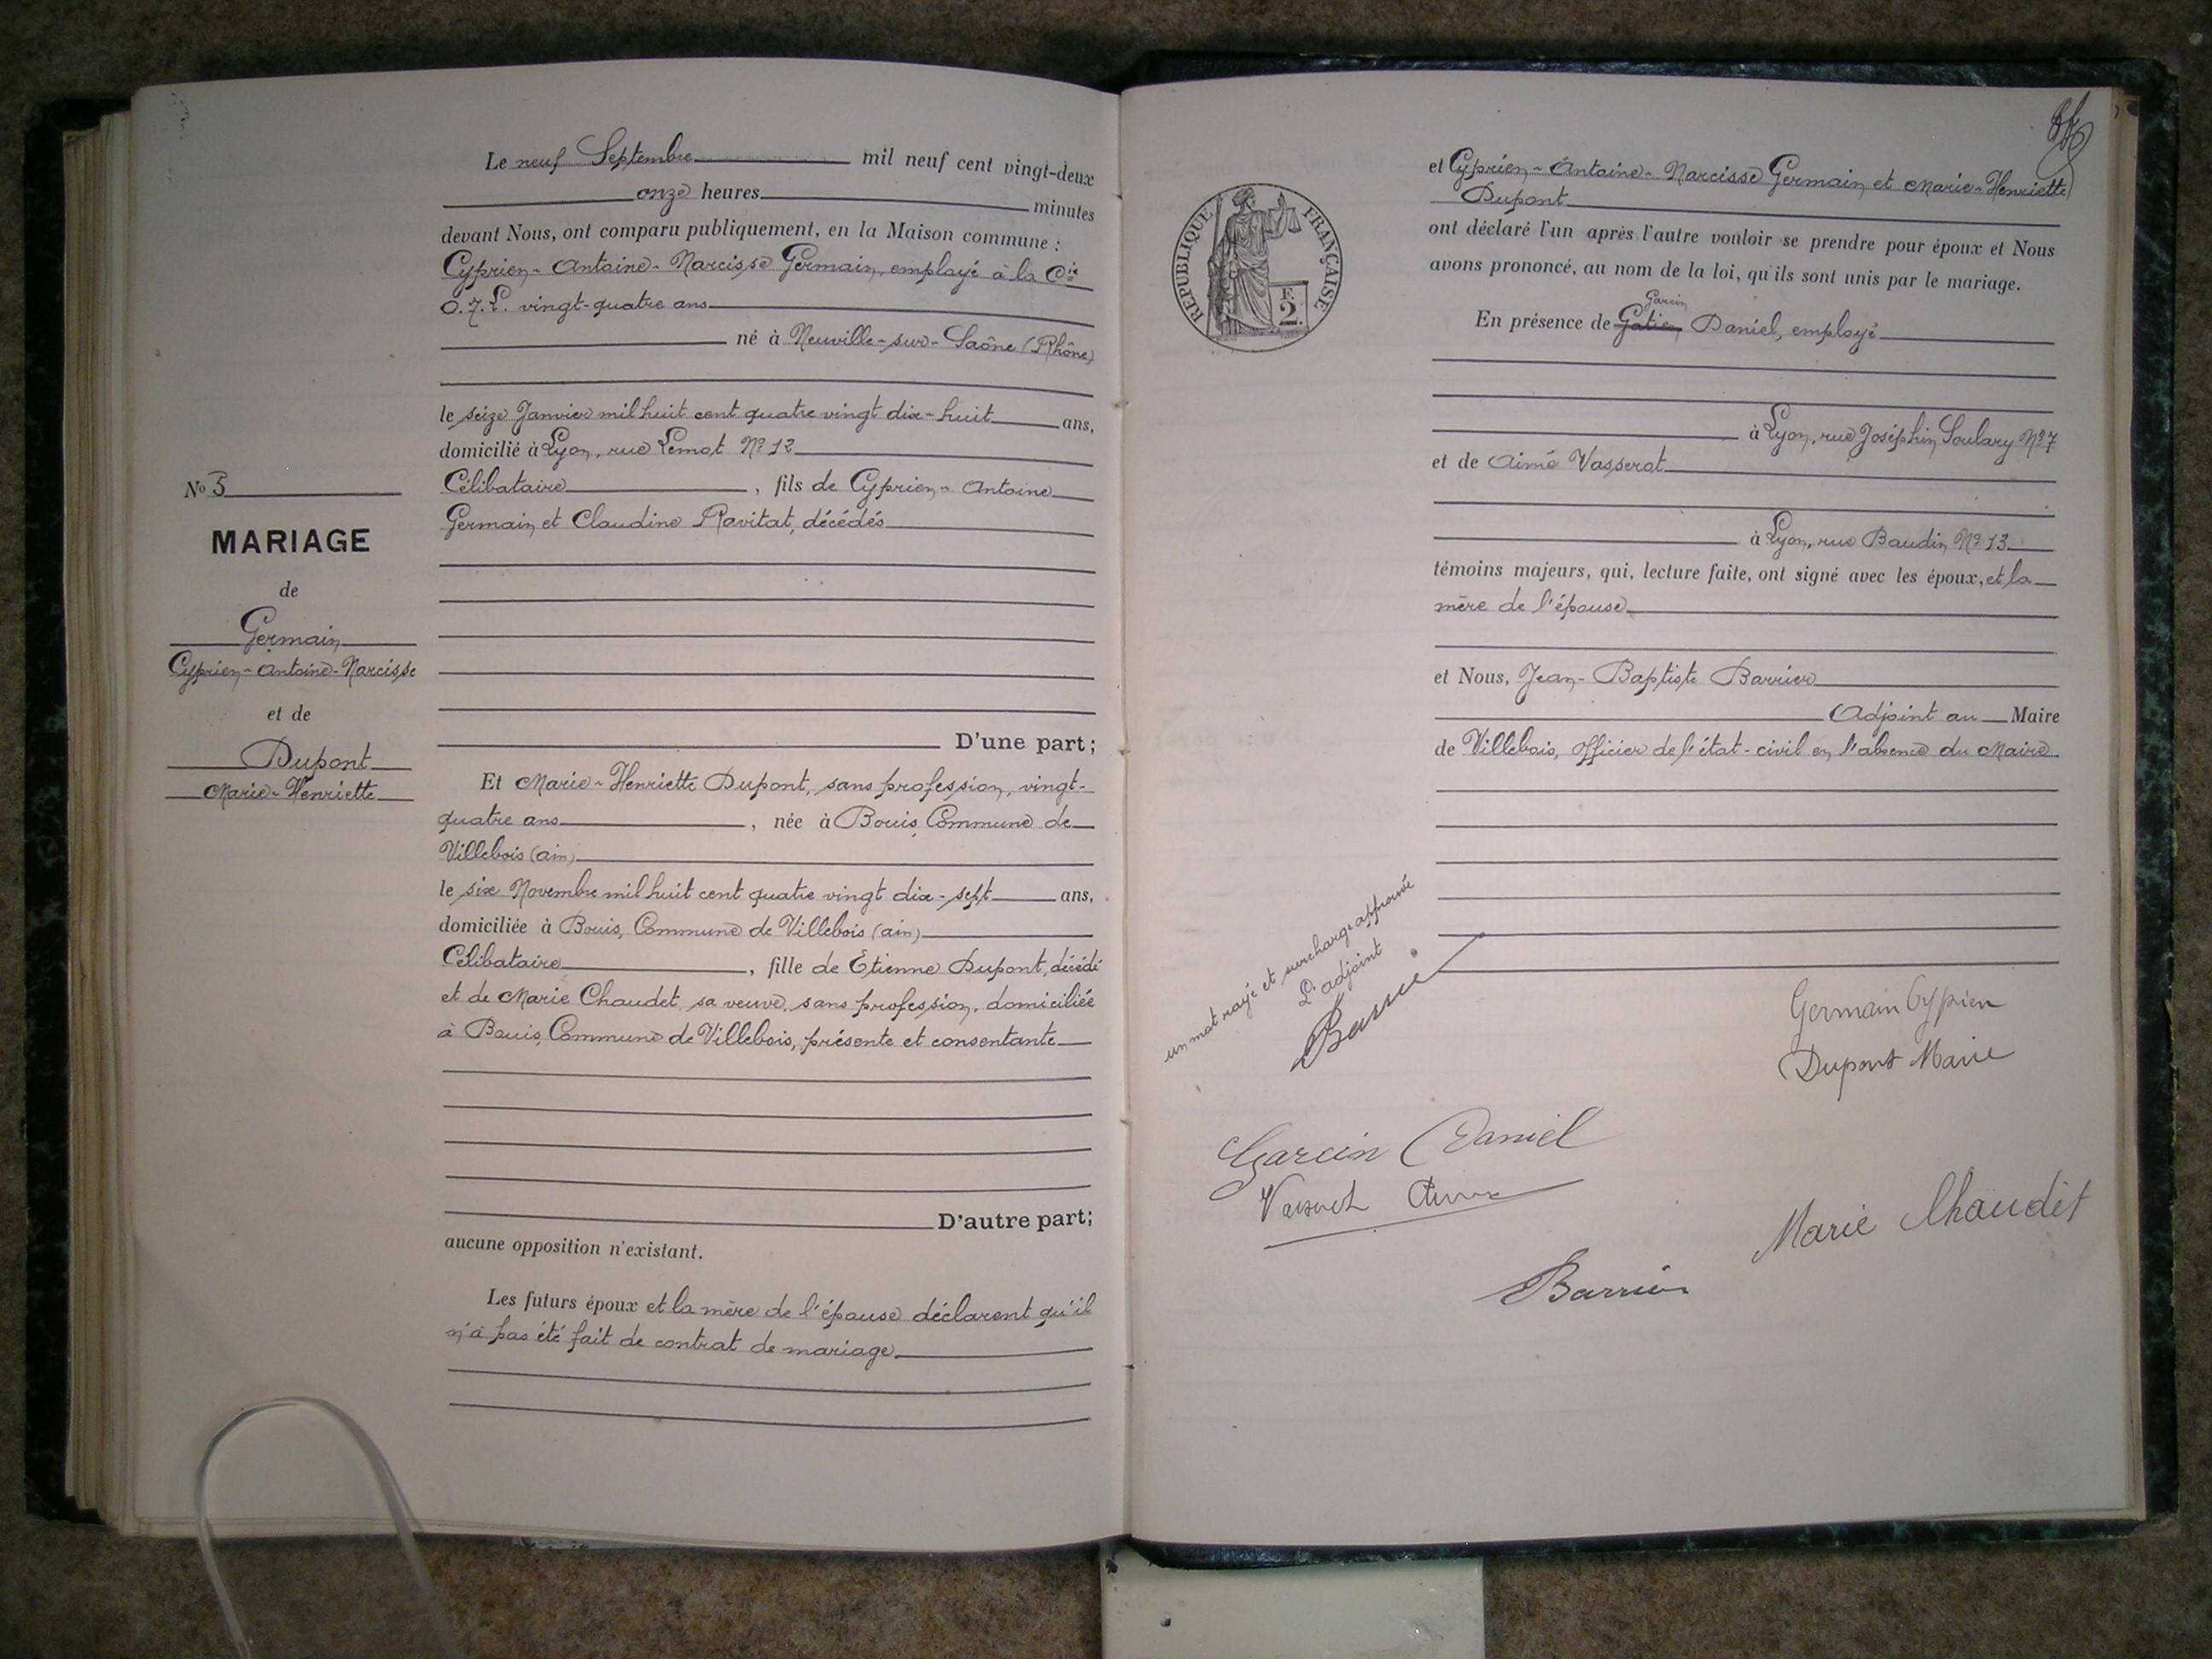 Le neuf Septembre mil neuf cent vingt-deux
onze heures minutes
devant Nous, ont comparu publiquement, en la Maison commune :
Cyprien-Antoine-Narcisse Germain, employé à la Cie
O.T.L. vingt-quatre ans
né à Neuville-sur-Saône (Rhône)
le seize Janvier mil huit cent quatre vingt dix-huit ans,
domicilié à Lyon, rue Lemot No 12
Célibataire, fils de Cyprien-Antoine
Germain et Claudine Ravitat, décédés
No 5
MARIAGE
de
Germain
Cyprien-Antoine-Narcisse
et de
Dupont
Marie-Henriette
D'une part;
Et Marie-Henriette Dupont, sans profession, vingt-
quatre ans, née à Bouis, Commune de
Villebois (ain)
le six Novembre mil huit cent quatre vingt dix-sept ans,
domiciliée à Bouis, Commune de Villebois (ain)
Célibataire, fille de Etienne Dupont, décédé
et de Marie Chaudet, sa veuve, sans profession, domiciliée
à Bouis, Commune de Villebois, présente et consentante
D'autre part;
aucune opposition n'existant.
Les futurs époux et la mère de l'épouse déclarent qu'il
n'a pas été fait de contrat de mariage
RÉPUBLIQUE FRANÇAISE
F.
2.
et Cyprien-Antoine-Narcisse Germain et Marie-Henriette
Dupont
ont déclaré l'un après l'autre vouloir se prendre pour époux et Nous
avons prononcé, au nom de la loi, qu'ils sont unis par le mariage.
Garcin
En présence de Gatien Daniel, employé
à Lyon, rue Joséphin Soulary No 7
et de Aimé Vasserot
à Lyon, rue Baudin No 13
témoins majeurs, qui, lecture faite, ont signé avec les époux, et la
mère de l'épouse
et Nous, Jean-Baptiste Barrier
Adjoint au Maire
de Villebois, officier de l'état-civil en l'absence du Maire
un mot rayé et surchargé approuvé
L'adjoint
Barrier
Germain Cyprien
Dupont Marie
Garcin Daniel
Vasserot Aimé
Marie Chaudet
Barrier